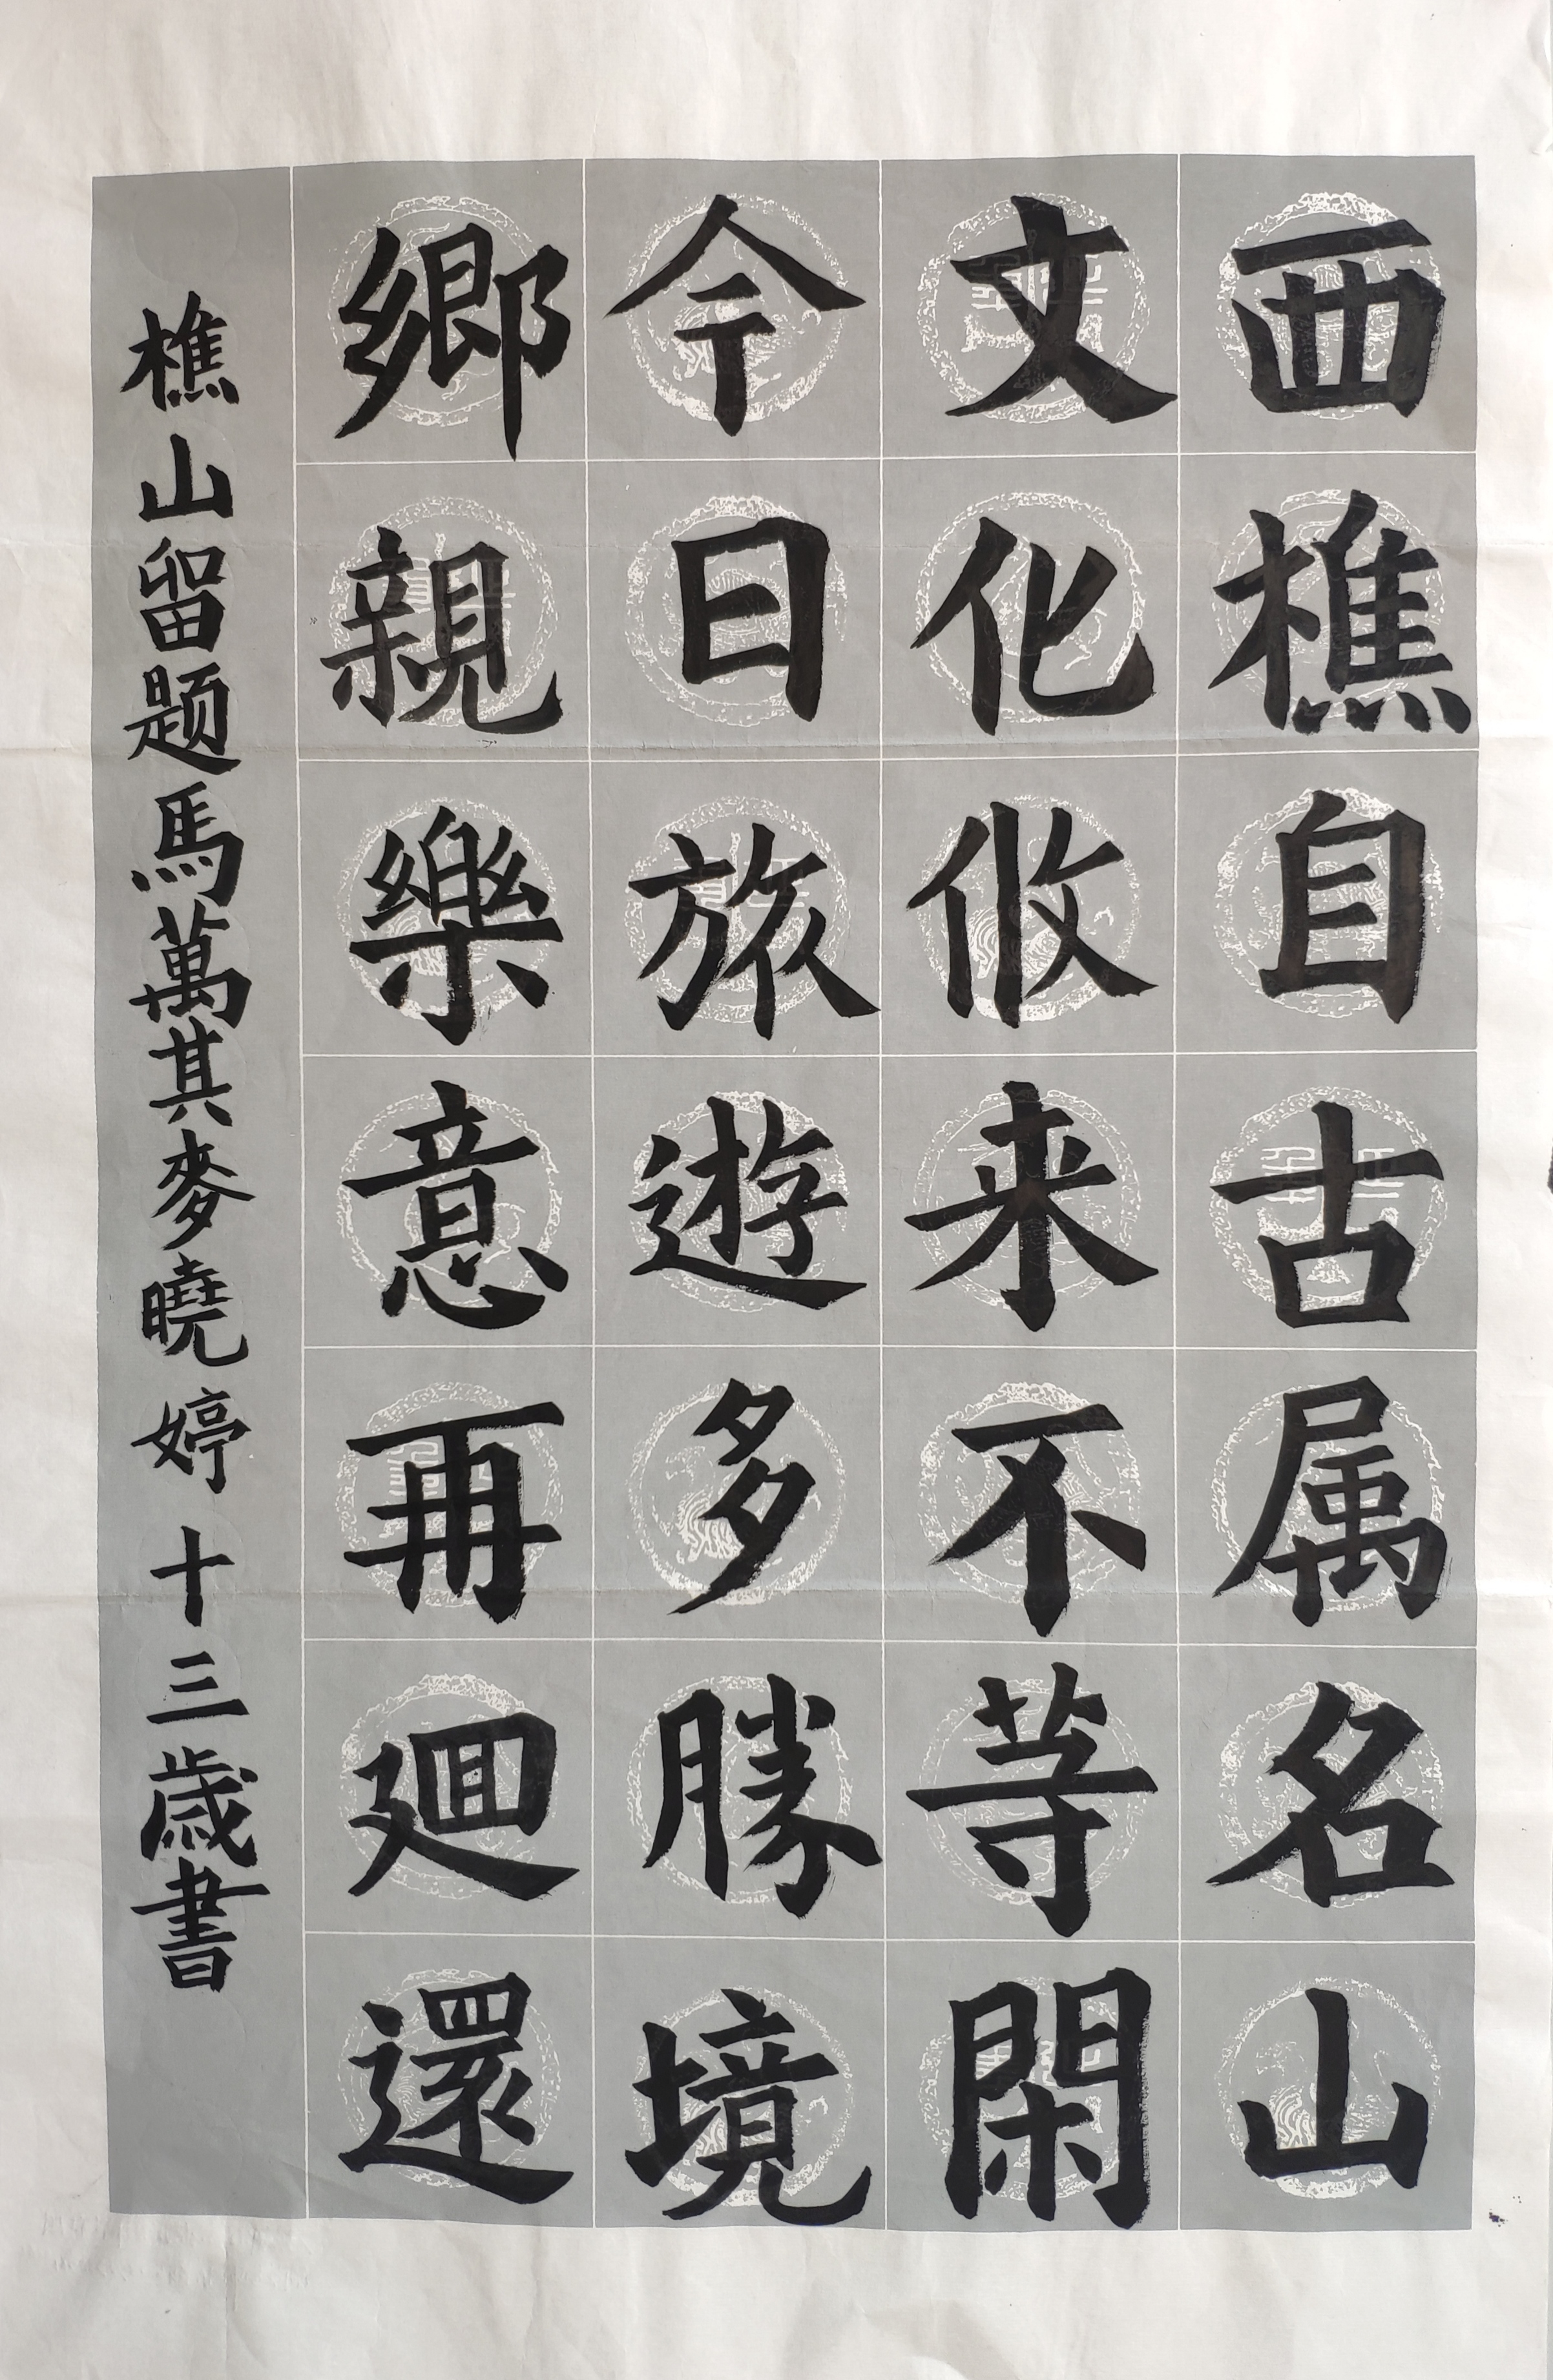 西樵自古属名山
文化攸来不等閑
今日旅遊多勝境
鄉親樂意再廻還
樵山留题馬萬其麥曉婷十三歲書